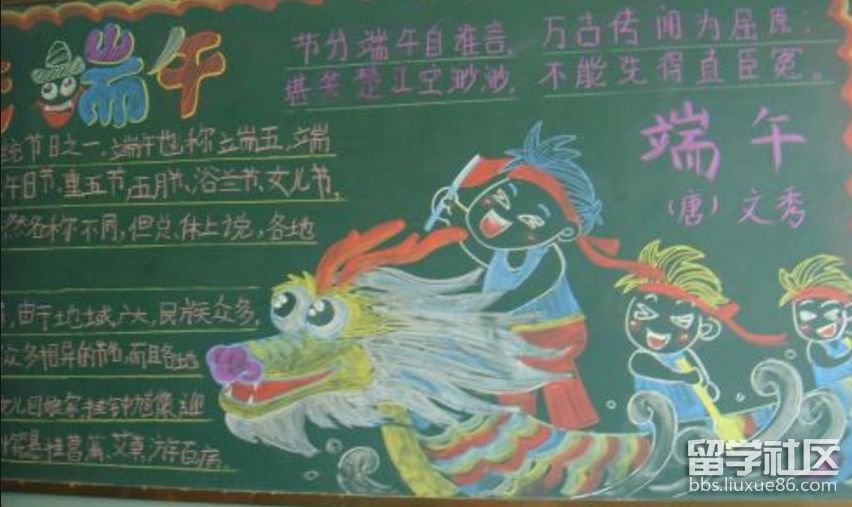 端午
节分端午自谁言，万古传闻为屈原；
堪笑楚江空渺渺，不能洗得直臣冤。
端午
（唐）文秀
统节日之一，端午也称立端五，端
午日节、重五节、五月节、浴兰节、女儿节，
然名称不同，但总体上说，各地
，由于地域广大，民族众多，
众多相异的节名，而且各地
女儿回娘家，挂钟馗像，迎
悬挂菖蒲、艾草，游百病，
留学社区
bbs.liuxue86.com